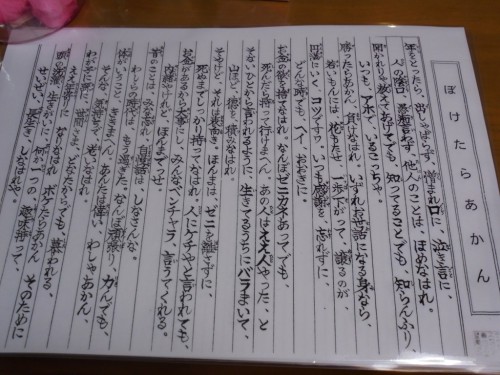 ぼけたらあかん
年をとったら、出しゃばらず、憎まれ口に、泣き言に、
人の陰口、愚痴言わず、他人のことは、ほめなはれ。
聞かれりゃ教えてあげても、知ってることでも、知らんふり、
いつも、アホで、いるこっちゃ。
勝ったらあかん、負けなはれ、いずれお世話になる身なら、
若いもんには、花もたせ、一歩下がって、譲るのが、
円満にいく、コツですわ、いつも感謝を、忘れずに、
どんな時でも、ヘイ、おおきに。
お金の欲を、捨てなはれ、なんぼゼニカネあってても、
死んだら持って行けまへん、あの人はええ人やった、と
そないひとから言われるように、生きてるうちにバラまいて、
山ほど、徳を、積みなはれ。
そやけど、それは表向き、ほんまは、ゼニを離さずに、
死ぬまでしっかり持ってなはれ。人にケチやと言われても、
お金があるから大事にし、みんなベンチャラ、言うてくれる。
内緒やけれど、ほんまでっせ。
昔のことは、みな忘れ、自慢話は、しなさんな、
わしらの時代は、もう過ぎた、なんぼ頑張り、力んでも、
体がいうこと、ききまへん、あんたは偉い、わしゃあかん、
そんな、気持ちで、おりなはれ。
わが子に、孫に、世間さま、どなたからでも、慕われる、
ええ年寄りに、なりなはれ、ボケたらあかん、そのために
頭の洗濯、生きがいに、何か一つの、趣味持って、
せいぜい、長生き、しなはれや。